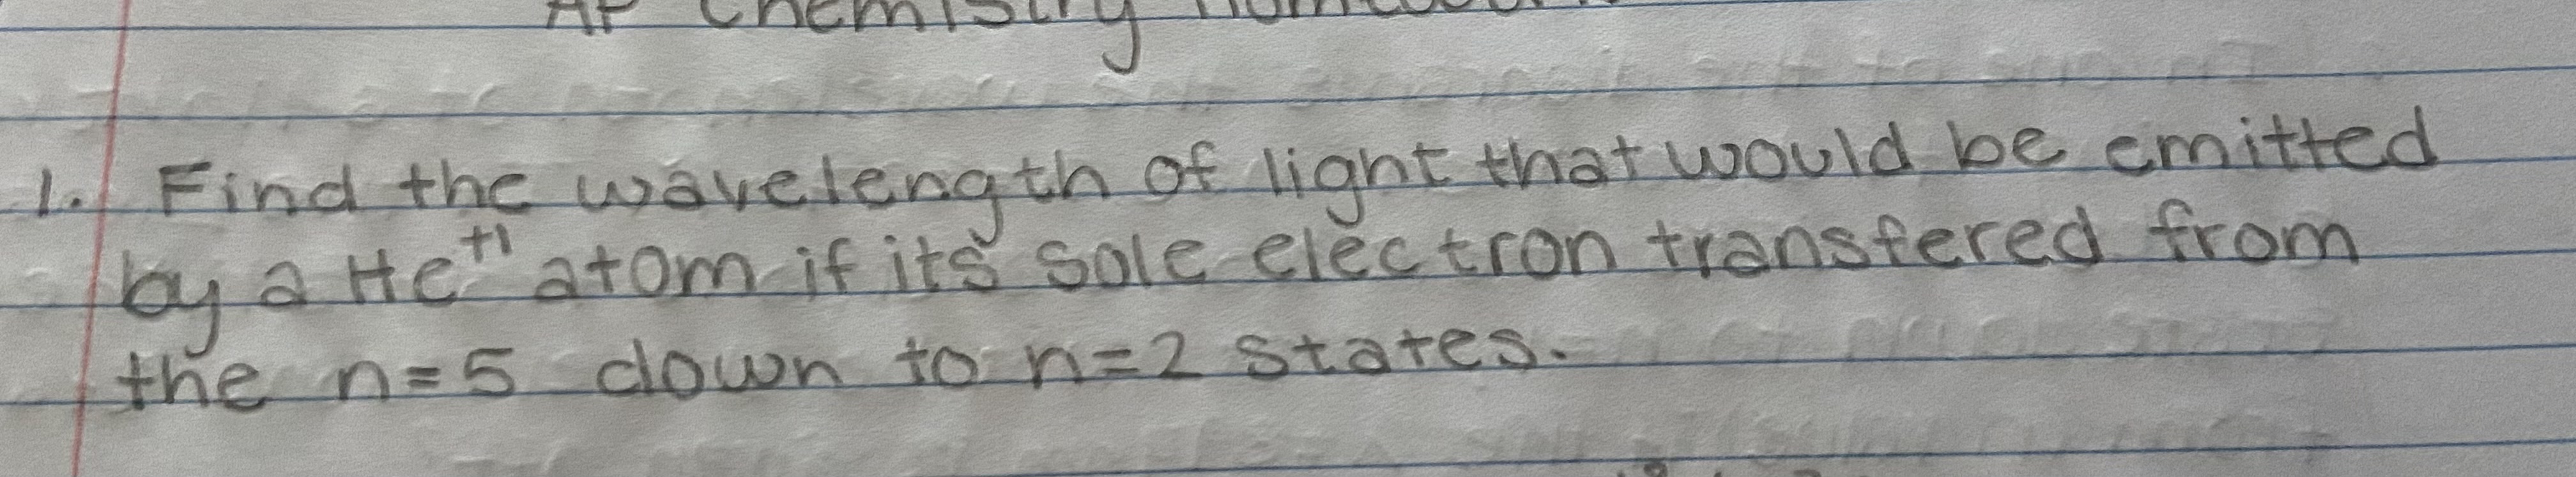 AP Chemistry Homework
1. Find the wavelength of light that would be emitted
by a He+1 atom if its sole electron transfered from
the n=5 down to n=2 states.